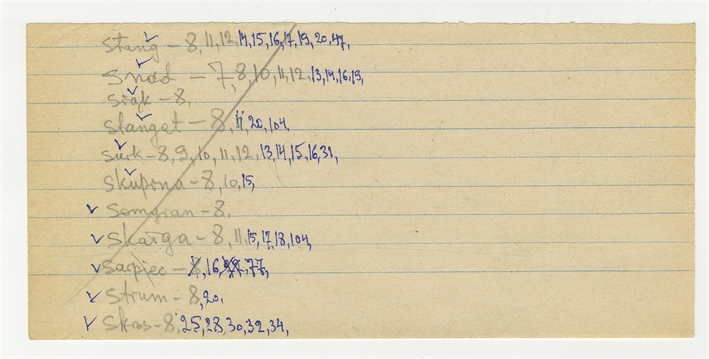 stang – 8, 11, 12, 14, 15, 16, 17, 19, 20, 47,
snad – 7, 8, 10, 11, 12, 13, 14, 16, 19,
siąk – 8,
slangat – 8, 11, 20, 104,
surk – 8, 9, 10, 11, 12, 13, 14, 15, 16, 31,
skupona – 8, 10, 15,
somgran – 8,
skarga – 8, 11, 15, 17, 18, 104,
sacpiec – 16, 77,
strum – 8, 20,
skos – 8, 25, 28, 30, 32, 34,